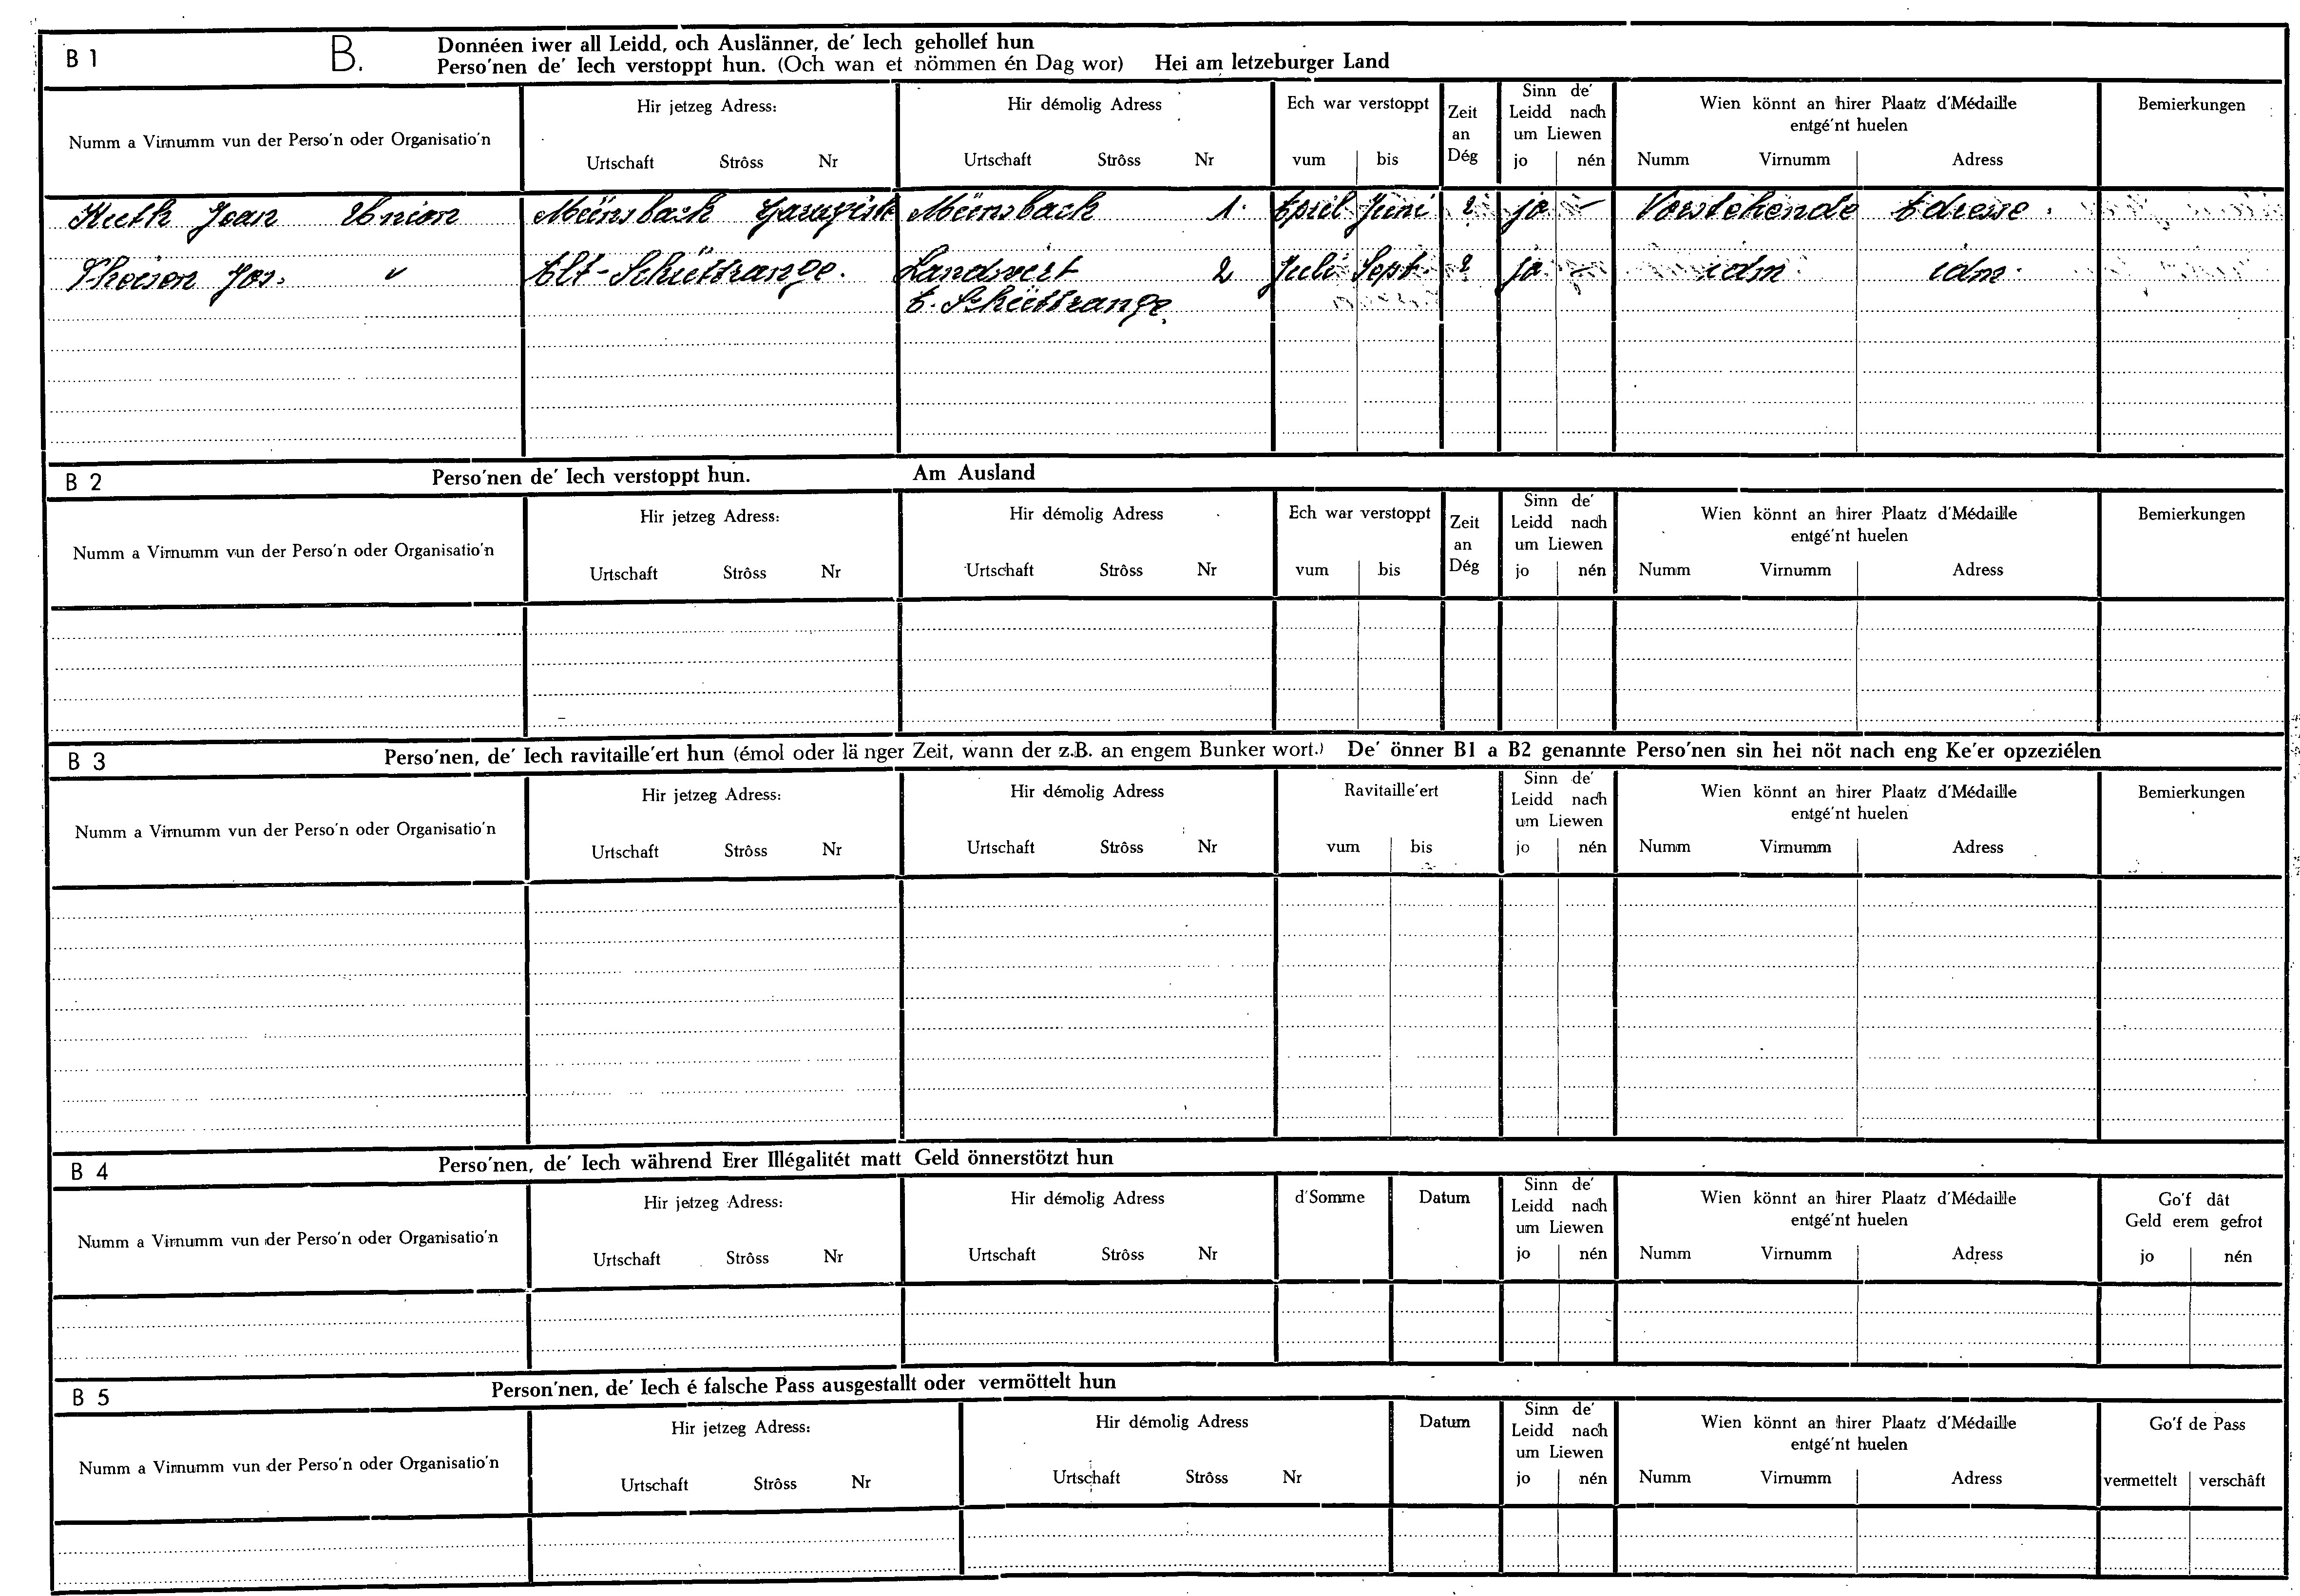 B 1 B. Donnéen iwer all Leidd, och Auslänner, de' Iech gehollef hun
Perso'nen de' Iech verstoppt hun. (Och wan et nömmen én Dag wor) Hei am letzeburger Land
Numm a Virnumm vun der Perso'n oder Organisatio'n
Hir jetzeg Adress:
Urtschaft Strôss Nr
Hir démolig Adress
Urtschaft Strôss Nr
Ech war verstoppt
vum bis
Zeit
an
Dég
Sinn de'
Leidd nach
um Liewen
jo nén
Wien könnt an hirer Plaatz d'Médaille
entgé'nt huelen
Numm Virnumm Adress
Bemierkungen
Jean Union Münsbach Münsbach 1. April Juni 2 ja – Vorstehende Adresse.
Theisen Jos. " Alt-Schüttrange. Landwirt 2 Juli Sept. 2 ja – idm idm.
A. Schüttrange.
B 2 Perso'nen de' Iech verstoppt hun. Am Ausland
Numm a Virnumm vun der Perso'n oder Organisatio'n
Hir jetzeg Adress:
Urtschaft Strôss Nr
Hir démolig Adress
Urtschaft Strôss Nr
Ech war verstoppt
vum bis
Zeit
an
Dég
Sinn de'
Leidd nach
um Liewen
jo nén
Wien könnt an hirer Plaatz d'Médaille
entgé'nt huelen
Numm Virnumm Adress
Bemierkungen
B 3 Perso'nen, de' Iech ravitaille'ert hun (émol oder länger Zeit, wann der z.B. an engem Bunker wort.) De' önner B1 a B2 genannte Perso'nen sin hei nöt nach eng Ke'er opzeziélen
Numm a Virnumm vun der Perso'n oder Organisatio'n
Hir jetzeg Adress:
Urtschaft Strôss Nr
Hir démolig Adress
Urtschaft Strôss Nr
Ravitaille'ert
vum bis
Sinn de'
Leidd nach
um Liewen
jo nén
Wien könnt an hirer Plaatz d'Médaille
entgé'nt huelen
Numm Virnumm Adress
Bemierkungen
B 4 Perso'nen, de' Iech während Erer Illégalitét matt Geld önnerstötzt hun
Numm a Virnumm vun der Perso'n oder Organisatio'n
Hir jetzeg Adress:
Urtschaft Strôss Nr
Hir démolig Adress
Urtschaft Strôss Nr
d'Somme
Datum
Sinn de'
Leidd nach
um Liewen
jo nén
Wien könnt an hirer Plaatz d'Médaille
entgé'nt huelen
Numm Virnumm Adress
Go'f dât
Geld erem gefrot
jo nén
B 5 Person'nen, de' Iech é falsche Pass ausgestallt oder vermöttelt hun
Numm a Virnumm vun der Perso'n oder Organisatio'n
Hir jetzeg Adress:
Urtschaft Strôss Nr
Hir démolig Adress
Urtschaft Strôss Nr
Datum
Sinn de'
Leidd nach
um Liewen
jo nén
Wien könnt an hirer Plaatz d'Médaille
entgé'nt huelen
Numm Virnumm Adress
Go'f de Pass
vermettelt verschâft